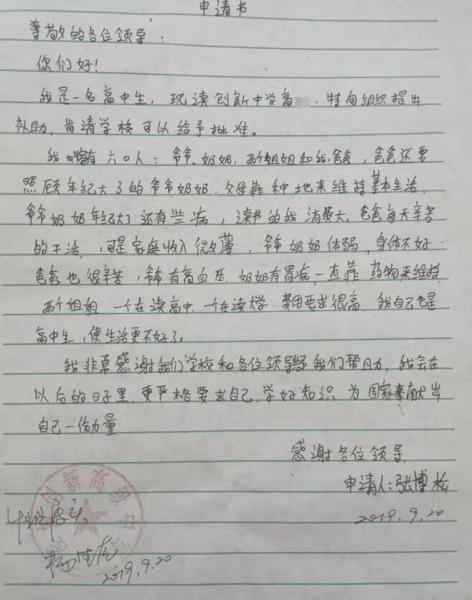 申请书
尊敬的各位领导：
你们好！
我是一名高中生，现读创新中学高 ，特向组织提出
补助，肯请学校可以给予批准。
我家有六口人：爷爷、奶奶、两个姐姐和我爸爸，爸爸还要
照顾年纪大了的爷爷奶奶，父母靠种地来维持基本生活，
爷爷奶奶年纪大了还有些病，读书的我消费大，爸爸每天辛苦
的干活，可是家庭收入微薄，爷爷奶奶体弱，身体不好
爸爸也很辛苦，爷爷有高血压，奶奶有胃病一直靠药物来维持
两个姐姐，一个在读高中，一个在读大学，费用要求很高，我自己也是
高中生，使生活更不好了。
我非常感谢我们学校和各位领导给我们帮助，我会在
以后的日子里，更严格要求自己，学好知识，为国家奉献出
自己一份力量
感谢各位领导
申请人：张博
2019.9.20
创新高级中
2019.9.20